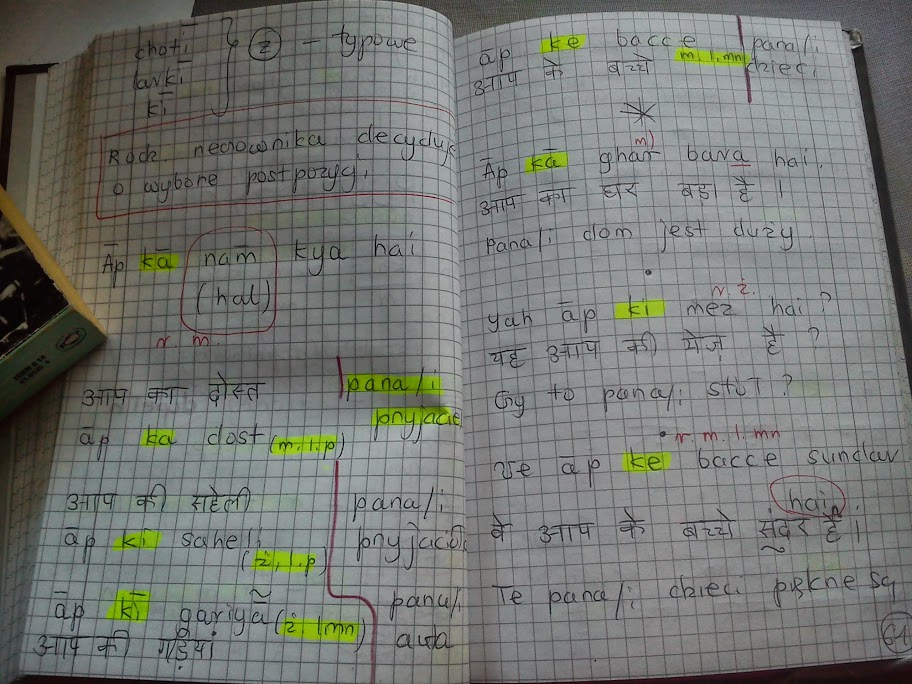 chotī
laṛkī
kī
ż - typowe
Rodz. rzeczownika decyduje
o wyborze postpozycji
Āp kā nam̄ kya hai
(hal)
r m.
आप का दोस्त pana/i
āp ka dost (m, l.p) przyjaciel
आप की सहेली pana/i
āp ki saheli (ż, l.p) przyjaciół
āp kī gariyā (ż, lmn) pana/i
आप की गड़ियां auta
āp ke bacce m. l. mn pana/i
आप के बच्चे dzieci
m)
Āp kā ghar bara hai.
आप का घर बड़ा है ।
Pana/i dom jest duży
r. ż.
Yah āp ki mez hai ?
यह आप की मेज़ है ?
Czy to pana/i stół ?
r. m. l. mn
Ve āp ke bacce sundar
hain.
वे आप के बच्चे सुंदर हैं ।
Te pana/i dzieci piękne są
61